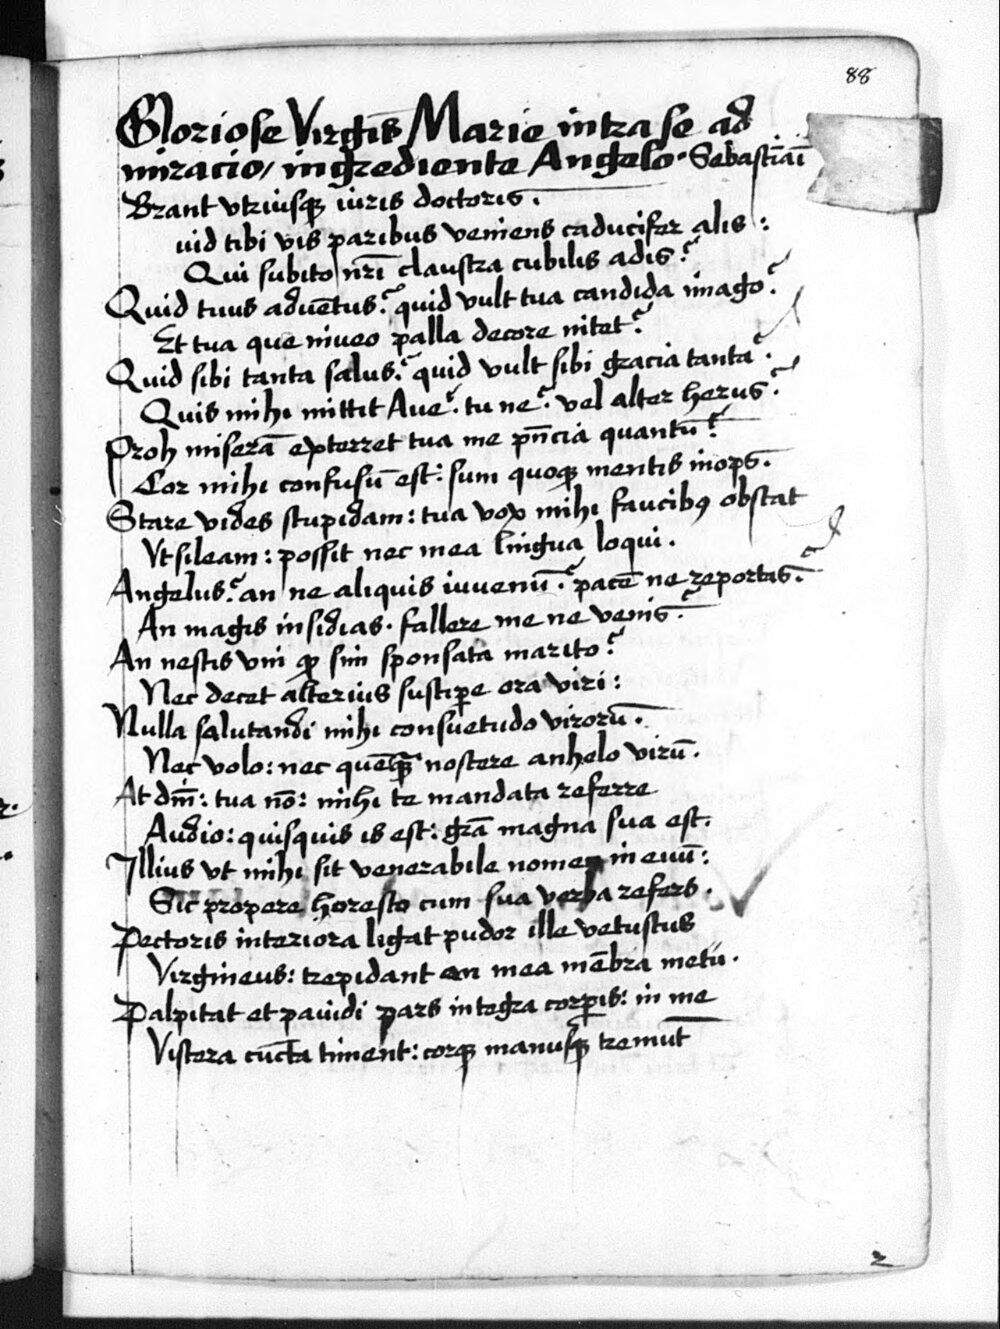 88
Gloriose Virginis Marie intra se ad
miracio, ingrediente Angelo. Sebastiāi
Brant vtriusqꝫ iuris doctoris.
uid tibi vis paribus veniens caducifer alis:
Qui subito nr̄i claustra cubilis adis?
Quid tuus aduētus? quid vult tua candida imago?
Et tua que niueo palla decore nitet?
Quid sibi tanta salus? quid vult sibi gracia tanta?
Quis mihi mittit Aue? tu ne? vel alter herus?
Proh miserā exterret tua me pn̄cia quantū?
Cor mihi confusū est: sum quoqꝫ mentis inops.
Stare vides stupidam: tua vox mihi faucibꝰ obstat
Vt sileam: possit nec mea lingua loqui.
Angelus? an ne aliquis iuuenū? pacē ne reportas?
An magis insidias. fallere me ne venis?
An nescis vni ꝙ sim sponsata marito?
Nec decet alterius suscipe ora viri:
Nulla salutandi mihi consuetudo virorū.
Nec volo: nec quēqꝫ noscere anhelo virū.
At dm̄: tua nō: mihi te mandata referre
Audio: quisquis is est: grā magna sua est.
Illius vt mihi sit venerabile nomen in euū:
Sic propere honesto cum sua verba refers.
Pectoris interiora ligat pudor ille vetustus
Virgineus: trepidant en mea mēbra metu.
Palpitat et pauidi pars integra corpis: in me
Viscera cūcta timent: corqꝫ manusqꝫ tremūt
2